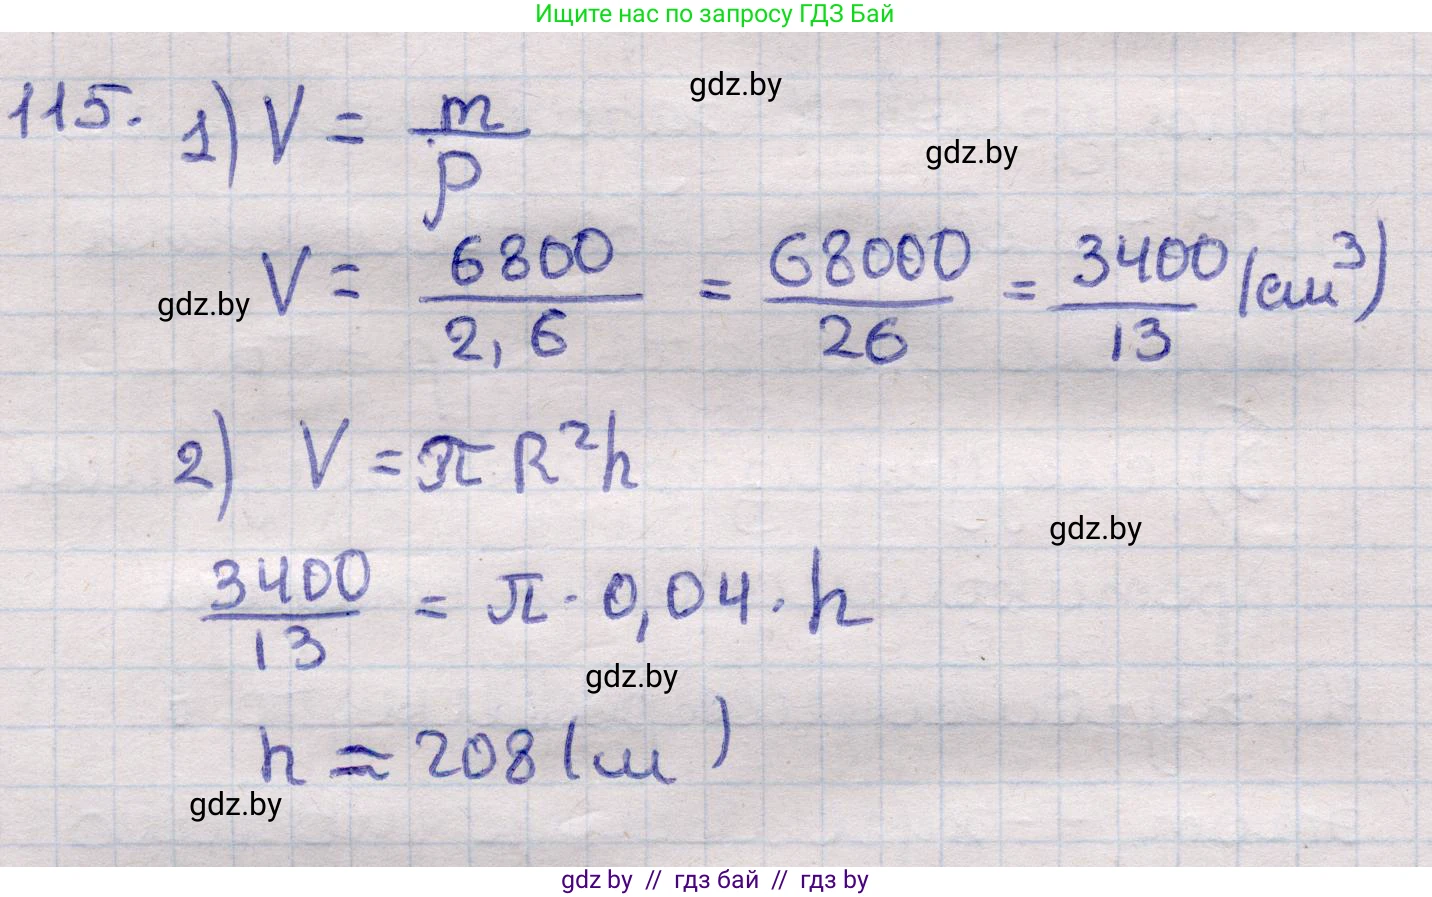 Ищите нас по запросу ГДЗ Бай
115. 1) V = m/ρ
gdz.by
gdz.by
V = 6800/2,6 = 68000/26 = 3400/13 (см³)
gdz.by
2) V = π R² h
gdz.by
3400/13 = π · 0,04 · h
gdz.by
h ≈ 208 (м)
gdz.by
gdz by // гдз бай // гдз by